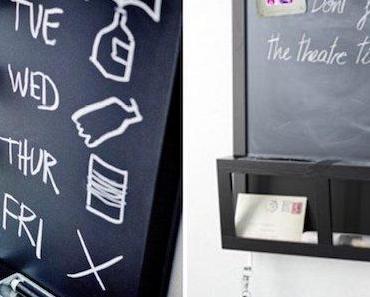 TUE
WED
THUR
FRI X
Dont
the theatre to